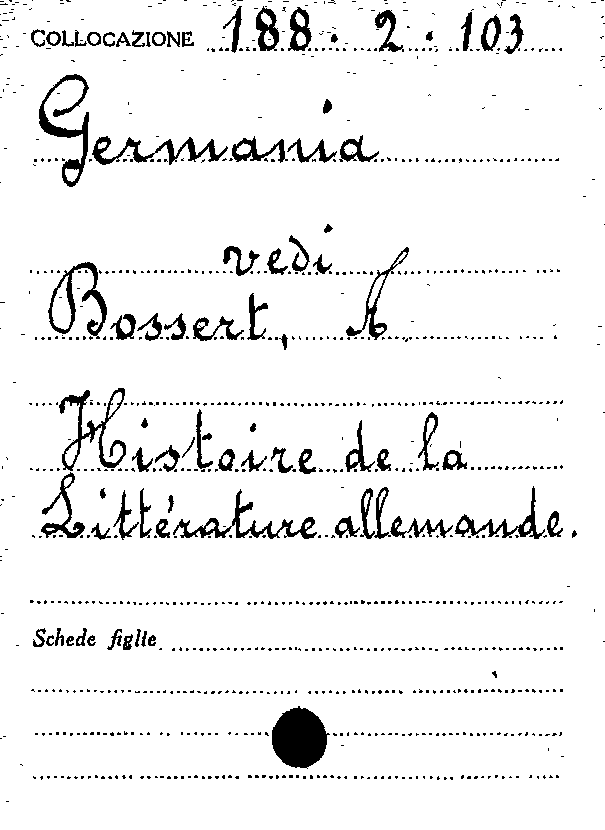 COLLOCAZIONE 188. 2. 103
Germania
vedi
Bossert, A.
Histoire de la
Littérature allemande.
Schede figlie